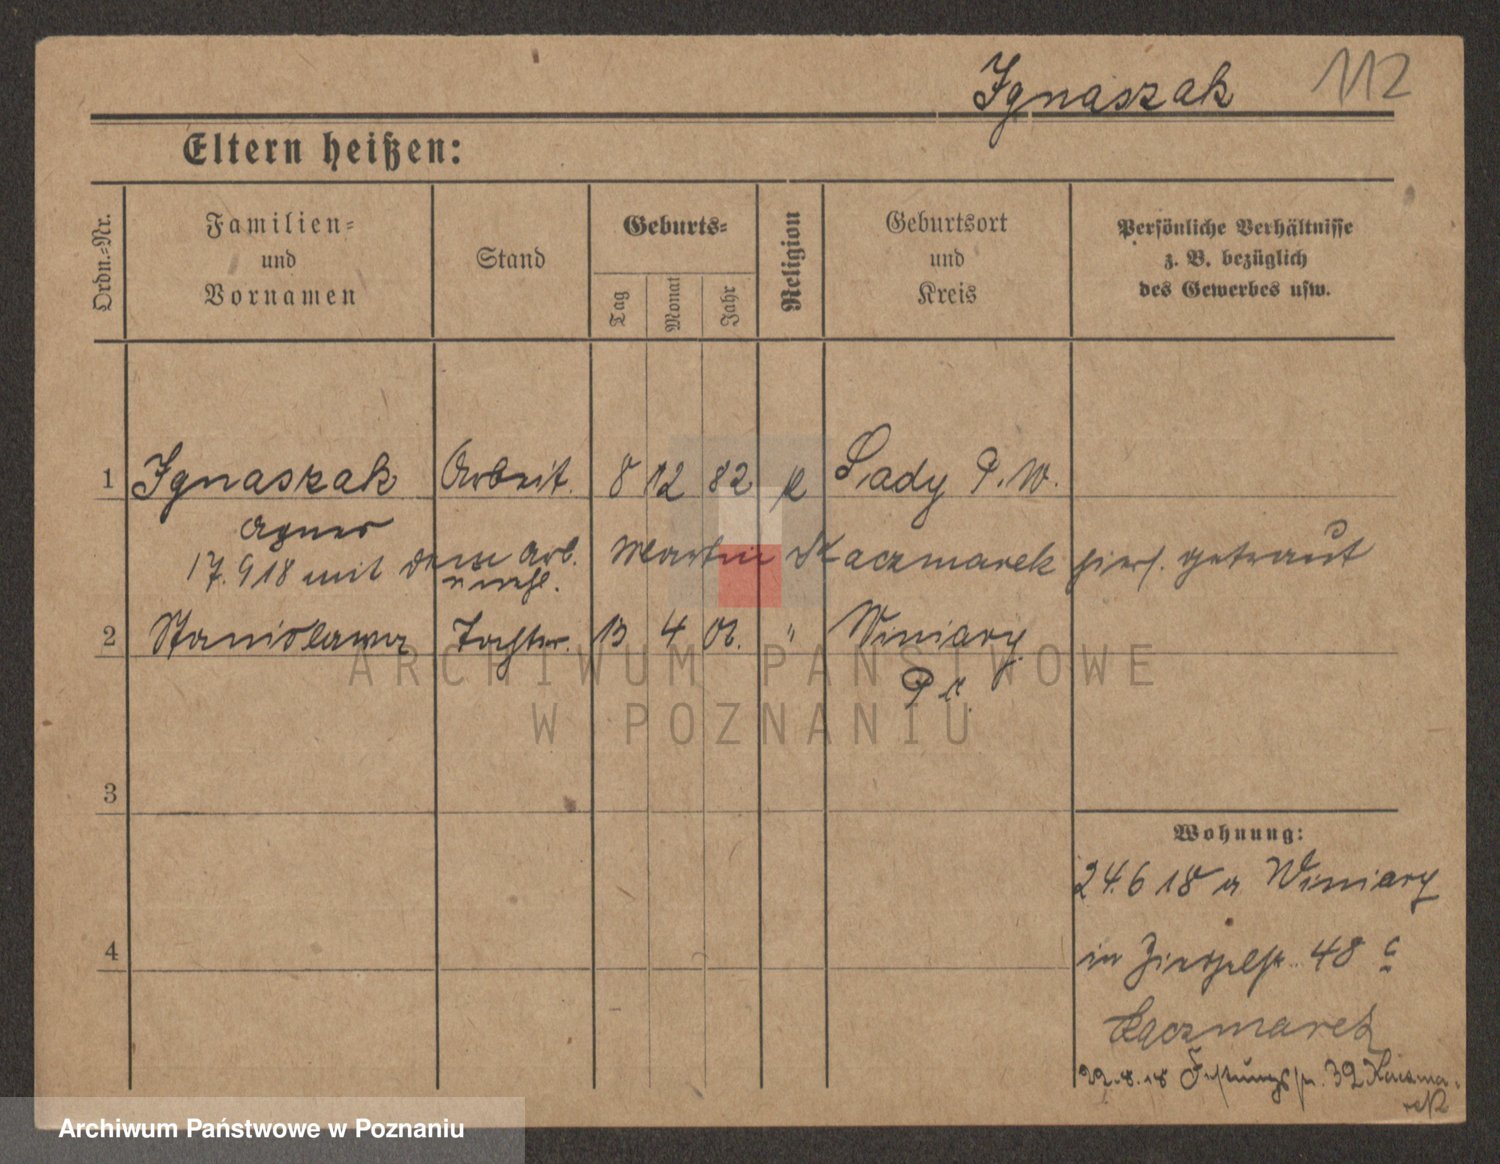 Ignaszak 112
Eltern heißen:
Ordn.-Nr.
Familien-
und
Vornamen
Stand
Geburts-
Tag
Monat
Jahr
Religion
Geburtsort
und
Kreis
Persönliche Verhältnisse
z. B. bezüglich
des Gewerbes usw.
1 Ignaszak Arbeit. 8 12 82 k Sady P. W.
Agnes
17.9 18 mit dem Arb. Martin Kaczmarek hiers. getraut
2 Stanislawa Tochter. 13 4 " Winiary
P
ARCHIWUM PAŃSTWOWE
W POZNANIU
3
Wohnung:
24.6 18 a Winiary
4
in 48 c
Kaczmarek
22.8.18 Festungsstr. 32 Kaczma-
rek
Archiwum Państwowe w Poznaniu